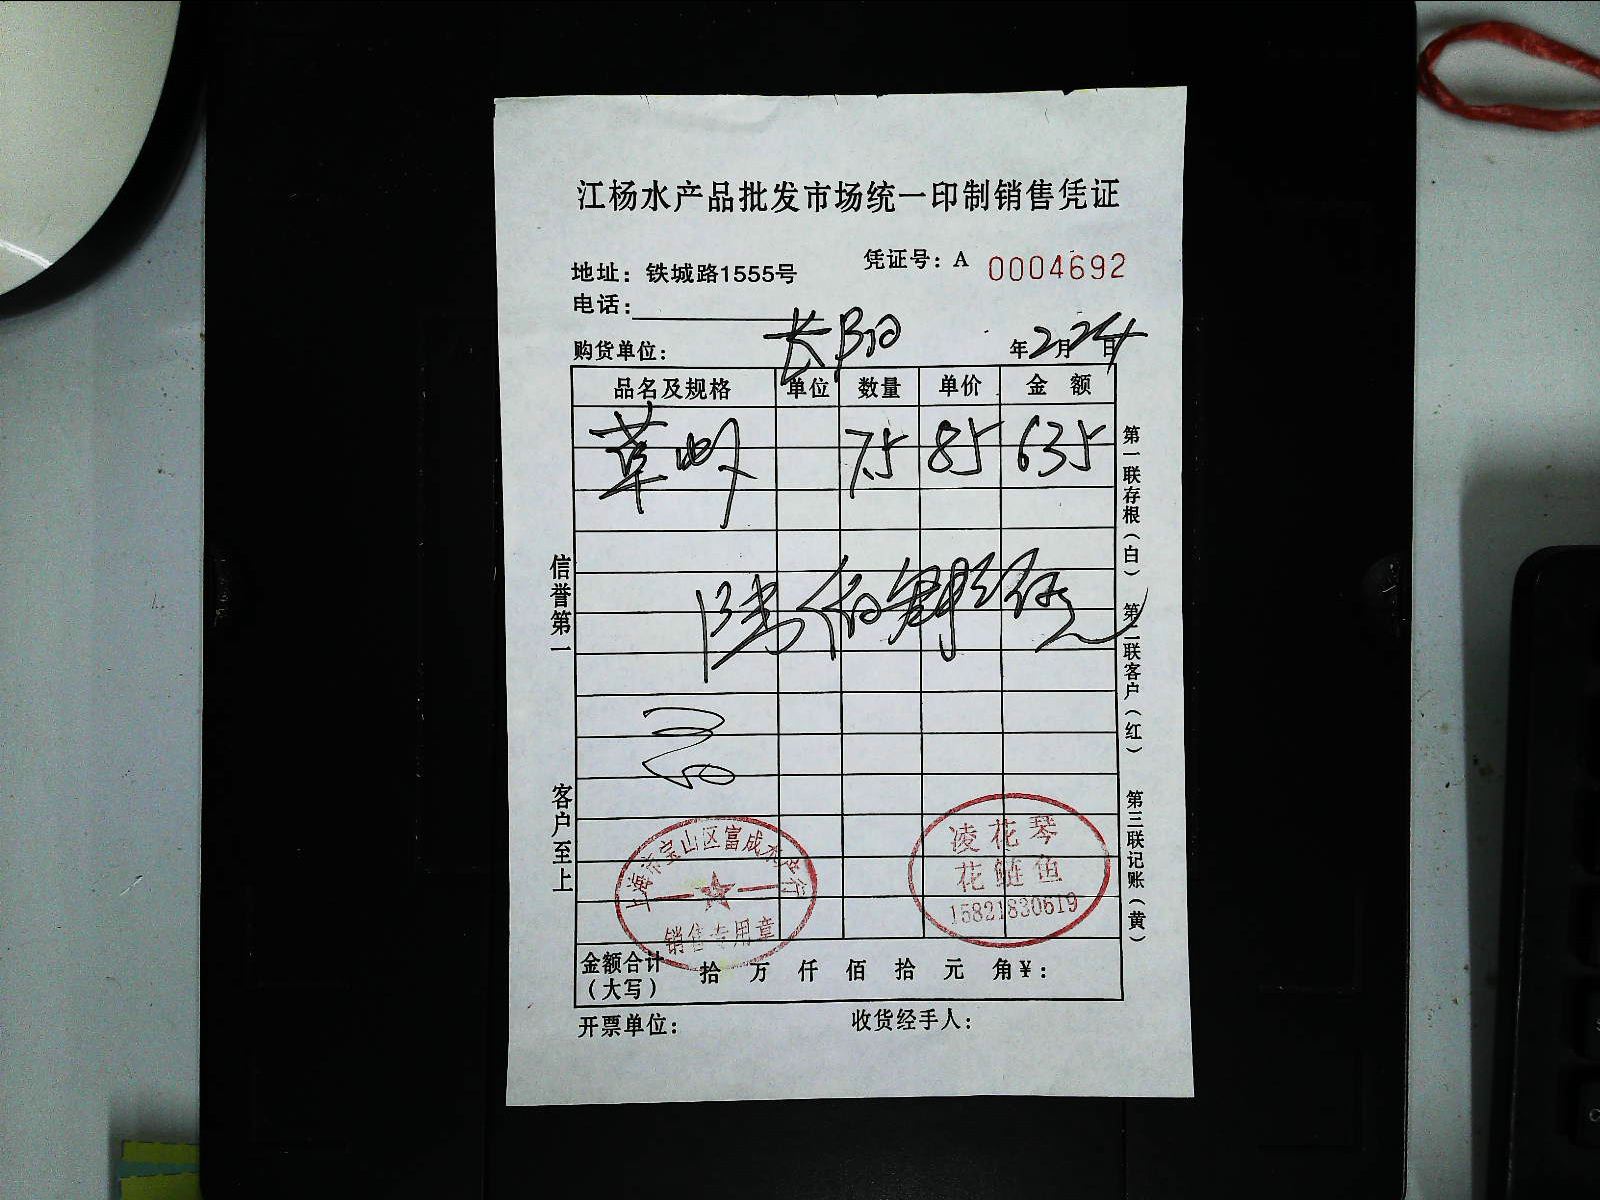 江杨水产品批发市场统一印制销售凭证
地址：铁城路1555号
凭证号：A 0004692
电话：
购货单位： 长阳
年2月24日
品名及规格 单位 数量 单价 金额
草 75 85 635
陆
信誉第一
客户至上
第一联存根（白） 第二联客户（红） 第三联记账（黄）
上海市宝山区富成水产行
销售专用章
凌花琴
花鲢鱼
15821830619
金额合计（大写） 拾 万 仟 佰 拾 元 角 ¥：
开票单位：
收货经手人：